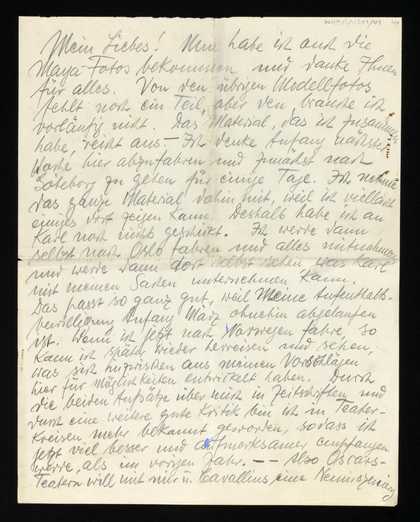 Mein Liebes! Nun habe ich auch die
Maya-Fotos bekommen und danke Ihnen
für alles. Von den übrigen Modellfotos
fehlt noch ein Teil, aber den brauche ich
vorläufig nicht. Das Material, das ich zusammen
habe, reicht aus. – Ich denke Anfang nächster
Woche hier abzufahren und zunächst nach
Göteborg zu gehen für einige Tage. Ich nehme
das ganze Material dahin mit, weil ich vielleicht
einiges dort zeigen kann. Deshalb habe ich an
Karl noch nichts geschickt. Ich werde dann
selbst nach Oslo fahren und alles mitnehmen
und werde dann dort selbst sehen was Karl
mit meinen Sachen unternehmen kann.
Das passt so ganz gut, weil meine Aufenthalts-
bewilligung Anfang März ohnehin abgelaufen
ist. Wenn ich jetzt nach Norwegen fahre, so
kann ich später wieder herreisen und sehen,
was sich inzwischen aus meinen Vorschlägen
hier für Möglichkeiten entwickelt haben. Durch
die beiden Aufsätze über mich in Zeitschriften und
durch eine weitere gute Kritik bin ich in Theater-
Kreisen mehr bekannt geworden, sodass ich
jetzt viel besser und aufmerksamer empfangen
werde, als im vorigen Jahr. – – Also Oscars-
Teatern will mit mir u. Cavallius eine